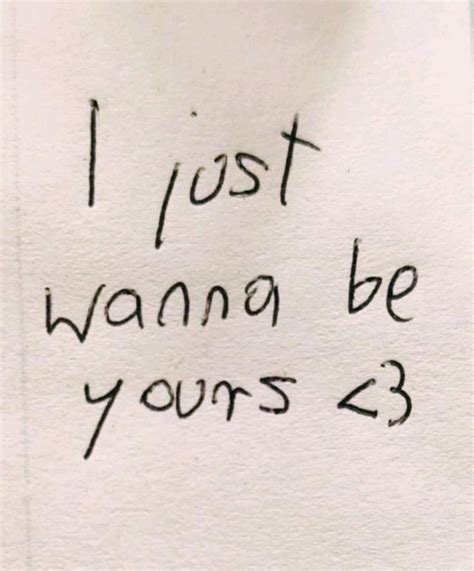 I just
wanna be
yours <3